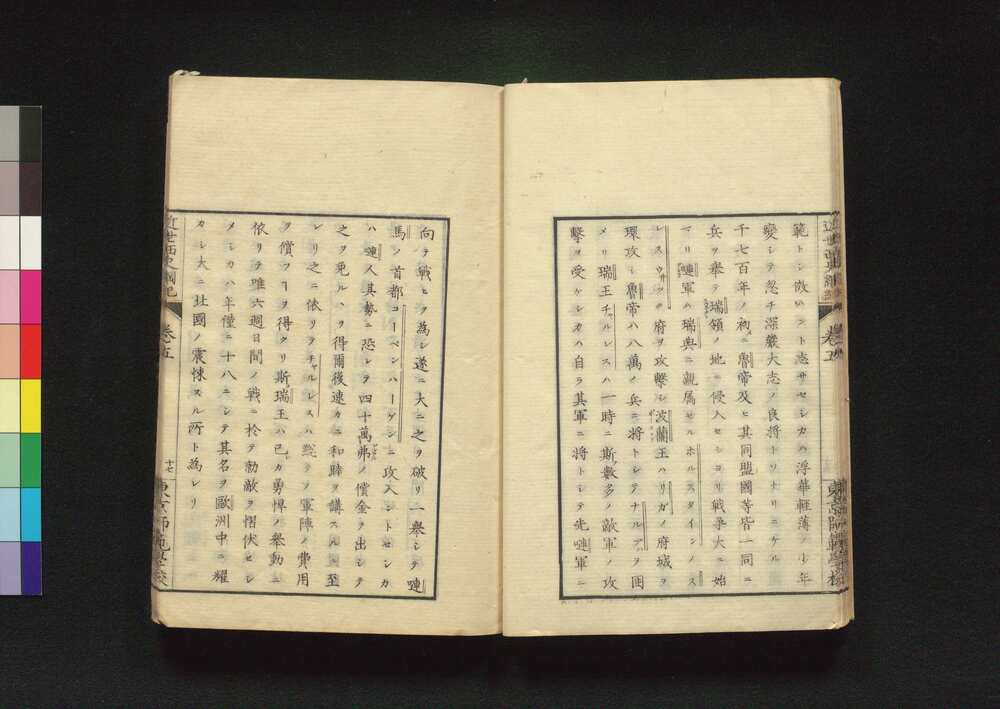 範トシ倣ハント志サセシカハ浮華輕薄ノ少年
變シテ忽チ深嚴大志ノ良將トソナリニケル
千七百年ノ初メニ魯帝及ヒ其同盟國等皆一同ニ
兵ヲ擧テ瑞領ノ地ニ侵入セシヨリ戰爭大ニ始
マリ嗹軍ハ瑞典ニ親屬セルホルスタインノス
レスウ井クノ府ヲ攻擊シ波蘭王ハリガノ府城ヲ
環攻シ魯帝ハ八萬ノ兵ニ將トシテナルアヲ囲
メリ瑞王チャルレスハ一時ニ斯數多ノ敵軍ノ攻
擊ヲ受ケシカハ自ラ其軍ニ將トシテ先嗹軍ニ
近世西史綱紀
卷五
向テ戰ヒヲ為シ遂ニ大ニ之ヲ破リ一擧シテ嗹
馬ノ首都コーペンハーゲンニ攻入ントセシカ
ハ嗹人其勢ニ恐レテ四十萬弗ノ償金ヲ出シテ
之ヲ免ルヽヲ得爾後速カニ和睦ヲ講スルニ至
レリ之ニ依リテチャルレスハ總テ軍陣ノ費用
ヲ償フヿヲ得タリ斯瑞王ハ己カ勇悍ノ擧動ニ
依リテ唯六週日間ノ戰ニ於テ勍敵ヲ慴伏セシ
メシカハ年僅ニ十八ニシテ其名ヲ歐洲中ニ耀
カシ大ニ北國ノ震悚スル所ト為レリ
近世西史綱紀
卷五
十七
東京師範學校